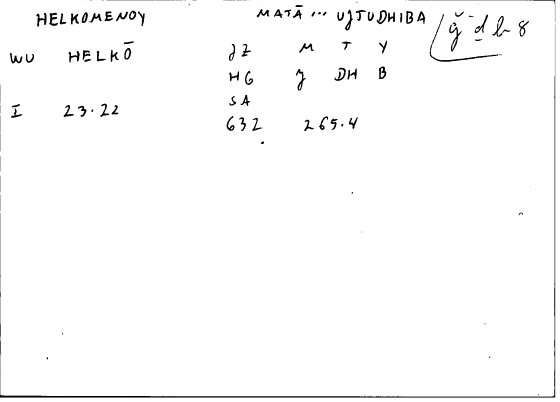 HELKOMENOY MATĀ ... UJTUDHIBA ǧ ḏ b 8
WU HELKŌ JZ M T Y
HG J DH B
I 23.22 SA
632 265.4